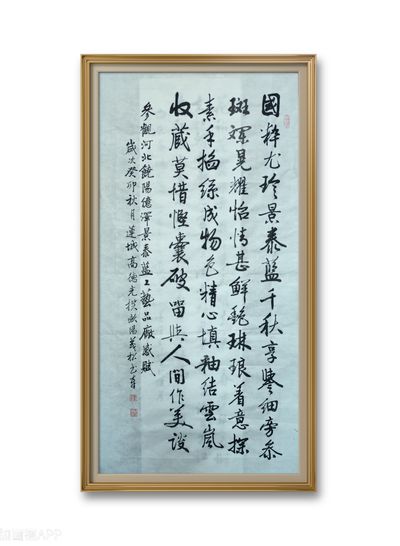 國粹尤珍景泰藍千秋享譽細旁參
斑斕晃耀怡情甚鮮艷琳琅着意探
素手掐絲成物色精心填釉結雲嵐
收藏莫惜慳囊破留與人間作美談
參觀河北饒陽億渾景泰藍工藝品廠感賦
歲次癸卯秋月蓮城高德光撰
APP